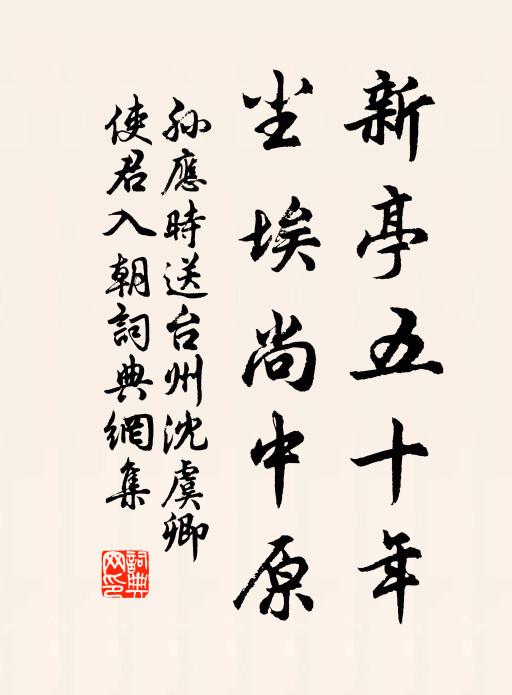 新亭五十年
尘埃尚中原
孙應時送台州沈虞卿
使君入朝詞典網集
詞典網印